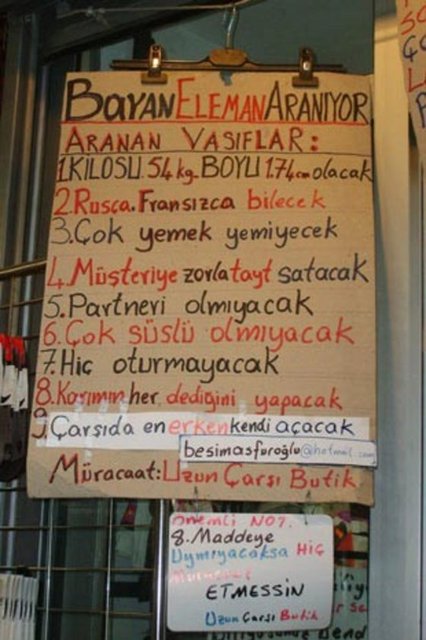 BAYAN ELEMAN ARANIYOR
ARANAN VASIFLAR:
1.KİLOSU.54 kg.BOYU 174cm olacak
2.Rusça.Fransızca bilecek
3.Çok yemek yemiyecek
4.Müşteriye zorla tayt satacak
5.Partneri olmıyacak
6.Çok süslü olmıyacak
7.Hiç oturmayacak
8.Karımın her dediğini yapacak
9 Çarşıda en erken kendi açacak
besimasfuroğlu@hotmail.com
Müracaat: Uzun Çarşı Butik
ÖNEMLİ NOT.
8.Maddeye
Uymıyacaksa HİÇ
ETMESSİN
Uzun Carsı Butik